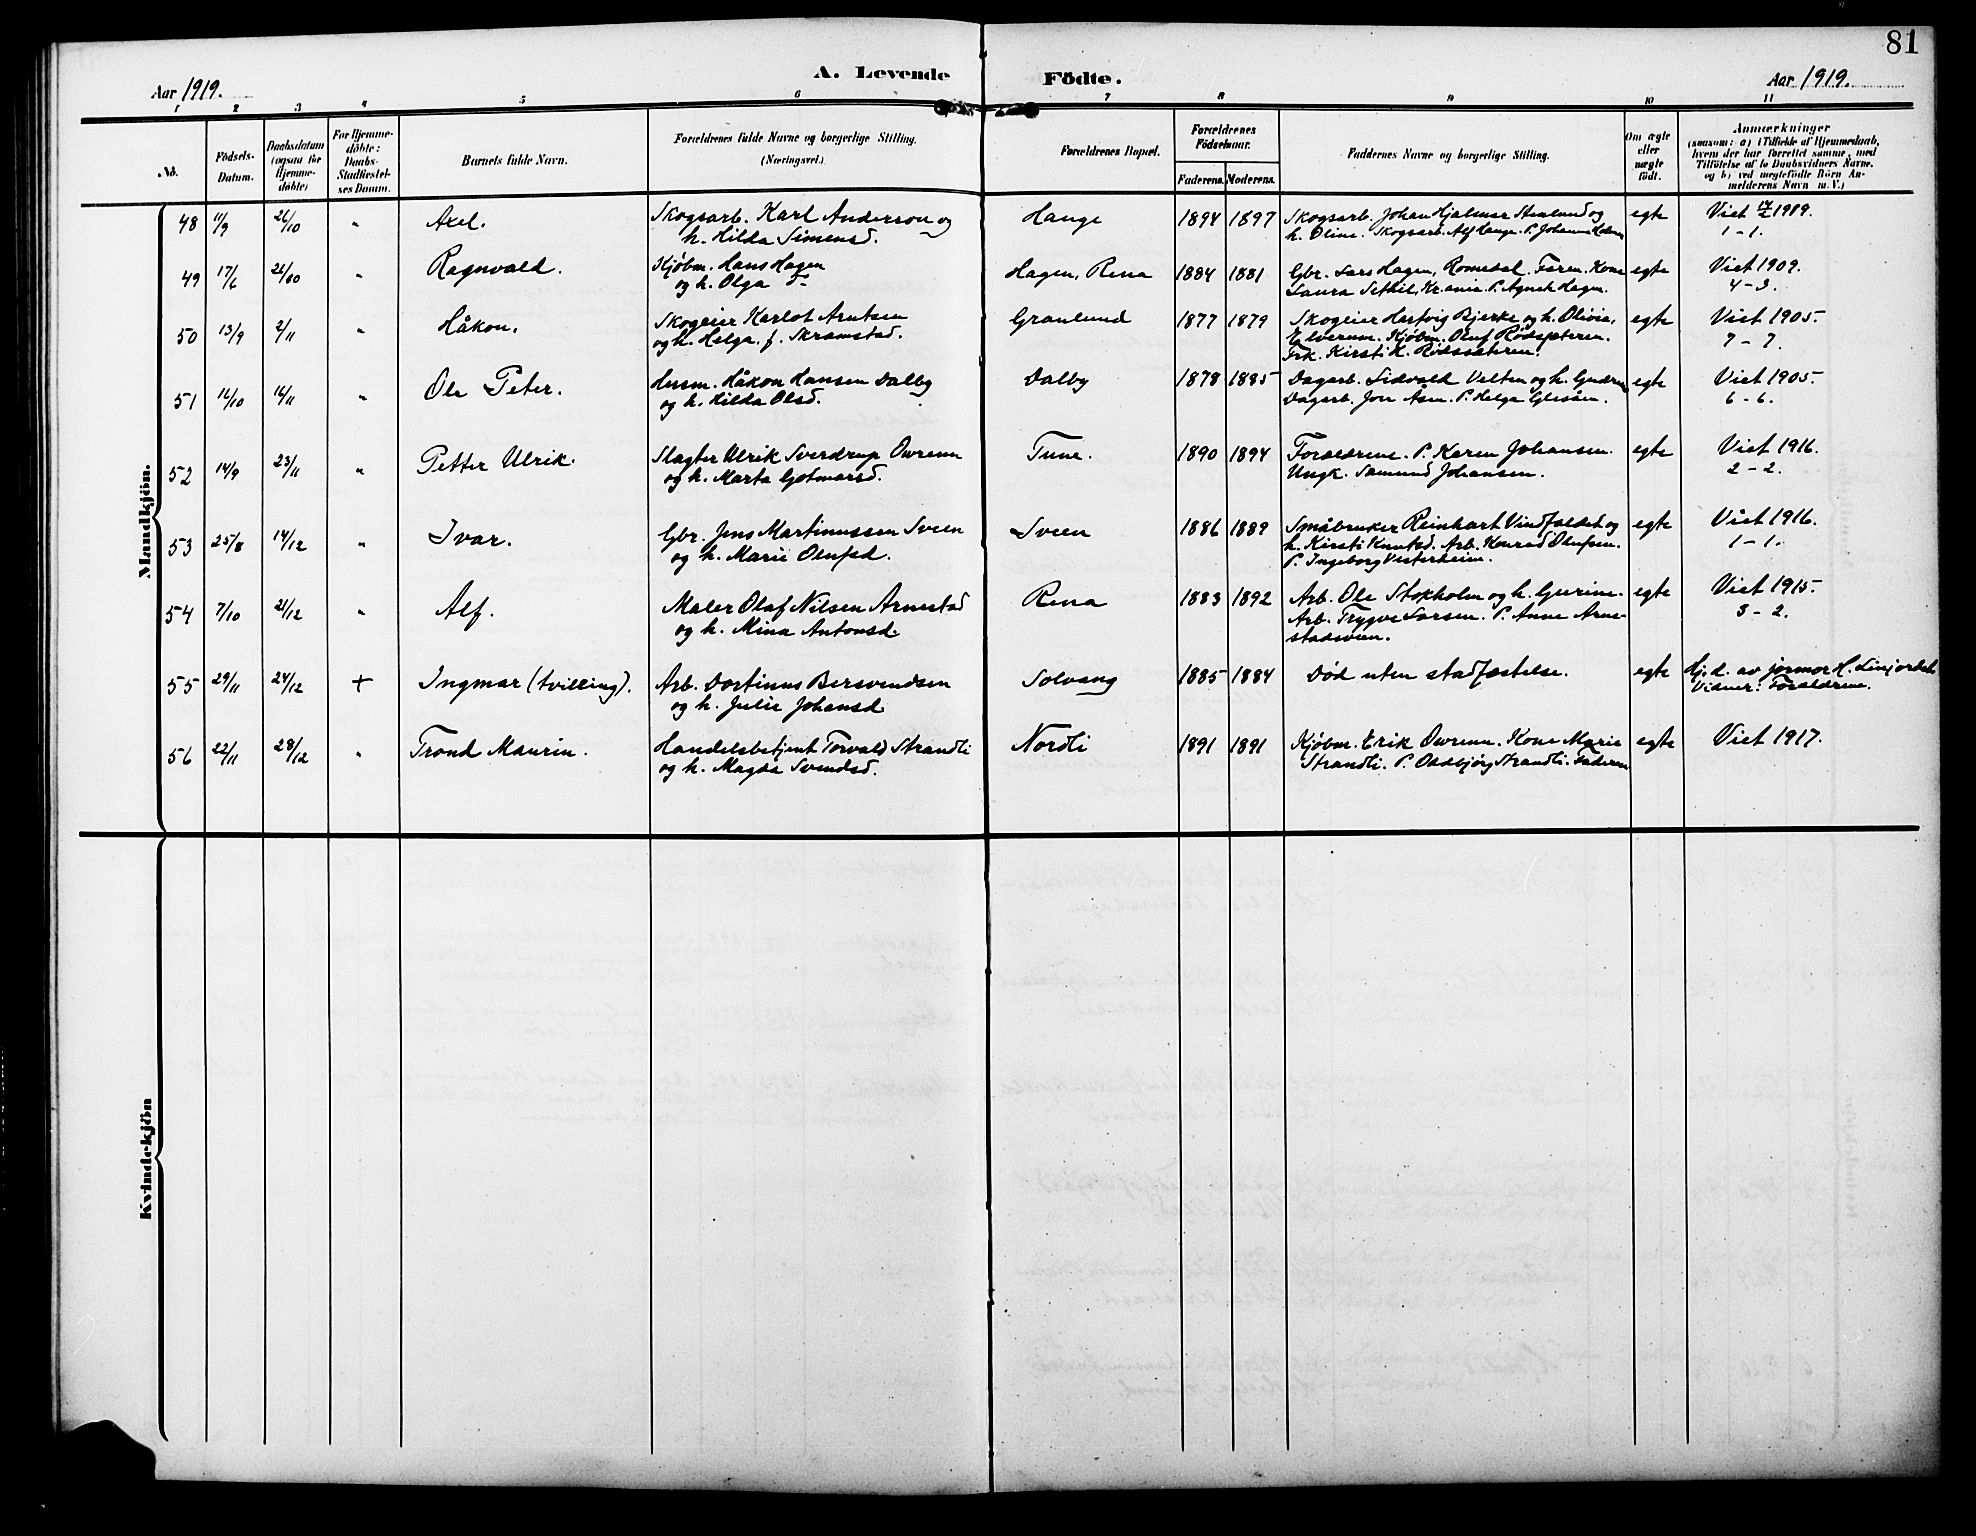 81
Aar 1919.
A. Levende Födte.
Aar 1919.
1 2 3 4 5 6 7 8 9 10 11
No.
Födsels-Datum.
Daabsdatum (ogsaa for Hjemme-döbte)
For Hjemme-döbte: Daabs-Stadfæstel-ses Datum.
Barnets fulde Navn.
Forældrenes fulde Navne og borgerlige Stilling. (Næringsvei.)
Forældrenes Bopæl.
Forældrenes Födselsaar.
Faderens. Moderens.
Faddernes Navne og borgerlige Stilling.
Om ægte eller uægte födt.
Anmærkninger
(saasom: a) i Tilfælde af Hjemmedaab, hvem der har forrettet samme, med Tilföielse af to Daabsvidners Navne, og b) ved uægtefödte Börn An-melderens Navn m. V.)
Mandkjön.
48 11/9 26/10 " Axel. Skogsarb. Karl Anderson og Hauge 1894 1897 Skogsarb. Johan Hjalmar Stenlund og egte Viet 1919.
h. Hilda Simensd. h. Oline. Skogsarb. Alf Hauge. P. Johanne 1-1.
49 17/6 26/10 " Ragnvald. Kjøbm. Hans Hagen Hagen, Rena 1884 1881 Gbr. Lars Hagen, Romedal. Faren. Kone egte Viet 1909.
og h. Olga Laura Sethil, Kr.ania. P. Agnete Hagen. 4-3.
50 13/9 2/11 " Håkon. Skogeier Karlot Arntsen Granlund 1877 1879 Skogeier Hartvig Bjerke og h. Olivia, egte Viet 1905.
og h. Helga, f. Skramstad. Elverum. Kjøbm. Oluf Rødsæteren. 7-7.
Frk. Kirsti K. Rødssæteren.
51 16/10 16/11 " Ole Peter. Husm. Håkon Hansen Dalby Dalby 1878 1885 Dagarb. Sidvald Velten og h. Gudrun egte Viet 1905.
og h. Hilda Olsd. Dagarb. Jon Åsen. P. Helga 6-6.
52 14/9 23/11 " Petter Ulrik. Slagter Ulrik Sverdrup Owrenn Tune. 1890 1894 Forældrene. P. Karen Johansen. egte Viet 1916.
og h. Marta Gotmarsd. Ungk. Samund Johansen. 2-2.
53 25/8 14/12 " Ivar. Gbr. Jens Martinussen Sveen Sveen 1886 1889 Småbruker Reinhart Vindfaldet og egte Viet 1916.
og h. Marie Olufsd. h. Kirsti Knutsd. Arb. Konrad Olufsen. 1-1.
P. Ingeborg Vesterheim.
54 7/10 21/12 " Alf. Maler Olaf Nilsen Arnestad Rena 1883 1892 Arb. Ole Stokholm og h. Gurine. egte Viet 1915.
og h. Mina Antonsd. Arb. Trygve Larsen. P. Anne Arne- 3-2.
stadsveen.
55 29/11 24/12 + Ingmar (tvilling). Arb. Dortinus Bersvendsen Solvang 1885 1884 Død uten stadfæstelse. egte Hj.d. av jormor H. Linjordet
og h. Julie Johansd. Vidner: Forældrene.
56 22/11 28/12 " Trond Maurin. Handelsbetjent Torvald Strandli Nordli 1891 1891 Kjøbm. Erik Owrenn. Kone Marie egte Viet 1917.
og h. Magda Svendsd. Strandli. P. Oddbjørg Strandli. Faderen
Kvindekjön